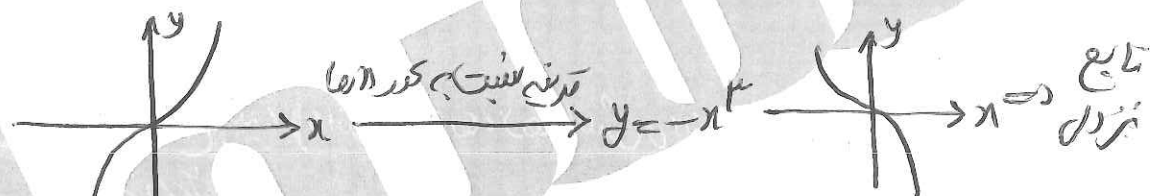 y
x
قرینه نسبت به محور xها
y = -x³
y
x ⇒
تابع
نزولی